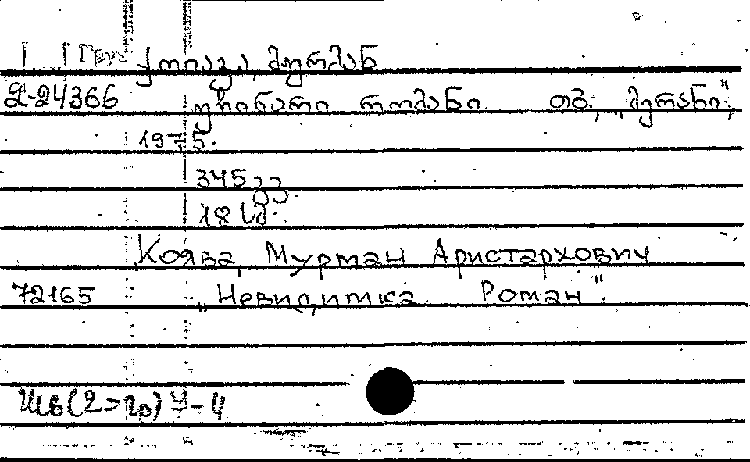 ქოიავა, მურმან
2-24366 უჩინარი რომანი თბ; „მერანი",
1975.
345 გვ.
18 სმ.
Коява, Мурман Аристархович
72165 „Невидимка Роман".